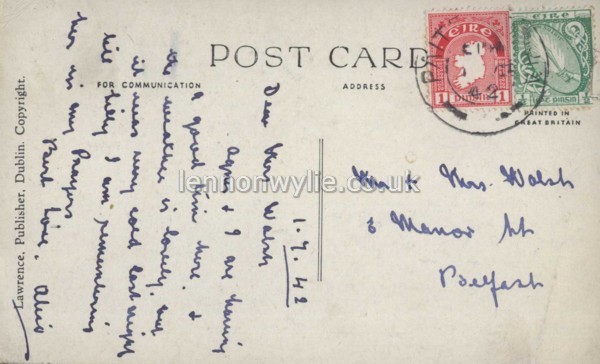 POST CARD
FOR COMMUNICATION
ADDRESS
PRINTED IN
GREAT BRITAIN
Lawrence, Publisher, Dublin. Copyright.
EIRE
1 1
EIRE
42
lennonwylie.co.uk
1.9.42
Dear Mrs Walsh
Agnes & I are having
a good time here. &
the weather is lovely, any
it was very cold last night
till I am remembering
her in my Prayers
Best Love.
Mr & Mrs. Walsh
3 Manor St
Belfast